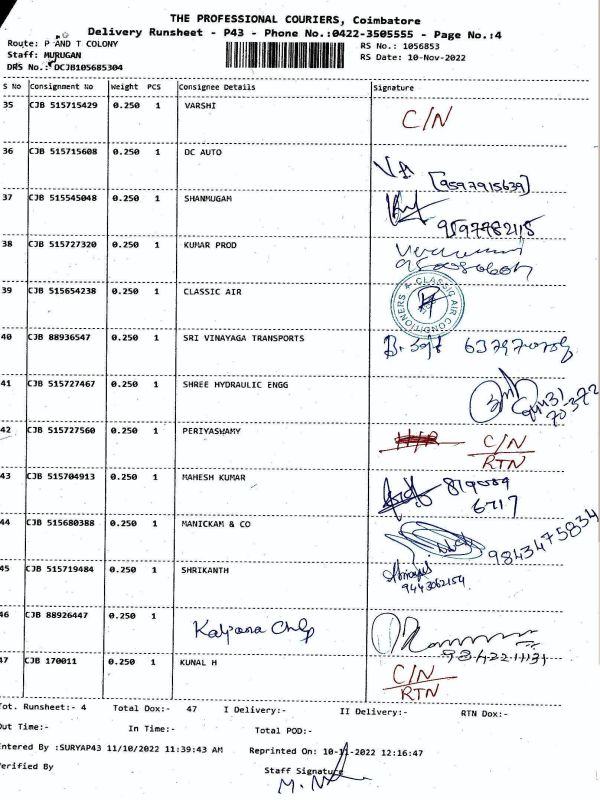 THE PROFESSIONAL COURIERS, Coimbatore
Delivery Runsheet - P43 - Phone No.:0422-3505555 - Page No.:4
Route: P AND T COLONY RS No.: 1056853
Staff: MURUGAN RS Date: 10-Nov-2022
DRS No.: DCJB105685304
S No Consignment No Weight PCS Consignee Details Signature
35 CJB 515715429 0.250 1 VARSHI C/N
36 CJB 515715608 0.250 1 DC AUTO [9597915639]
37 CJB 515545048 0.250 1 SHANMUGAM 9597782115
38 CJB 515727320 0.250 1 KUMAR PROD
39 CJB 515654238 0.250 1 CLASSIC AIR CLASSIC AIR CONDITIONERS
40 CJB 88936547 0.250 1 SRI VINAYAGA TRANSPORTS
41 CJB 515727467 0.250 1 SHREE HYDRAULIC ENGG 94431
70372
42 CJB 515727560 0.250 1 PERIYASWAMY C/N
RTN
43 CJB 515704913 0.250 1 MAHESH KUMAR 819089
6717
44 CJB 515680388 0.250 1 MANICKAM & CO 9843475834
45 CJB 515719484 0.250 1 SHRIKANTH
9443062154
46 CJB 88926447 0.250 1 Kalpana
47 CJB 170011 0.250 1 KUNAL H C/N
RTN
Tot. Runsheet:- 4 Total Dox:- 47 I Delivery:- II Delivery:- RTN Dox:-
Out Time:- In Time:- Total POD:-
Entered By :SURYAP43 11/10/2022 11:39:43 AM Reprinted On: 10-11-2022 12:16:47
Verified By Staff Signature